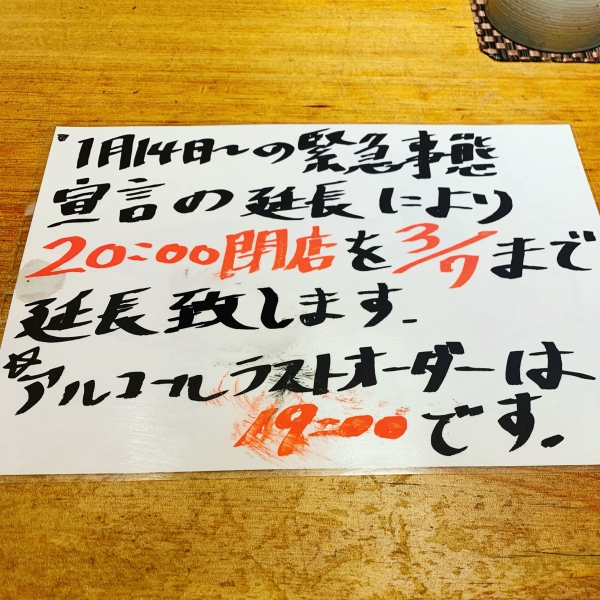 1月14日～の緊急事態
宣言の延長により
20:00閉店を3/7まで
延長致します.
※アルコールラストオーダーは
19:00です.